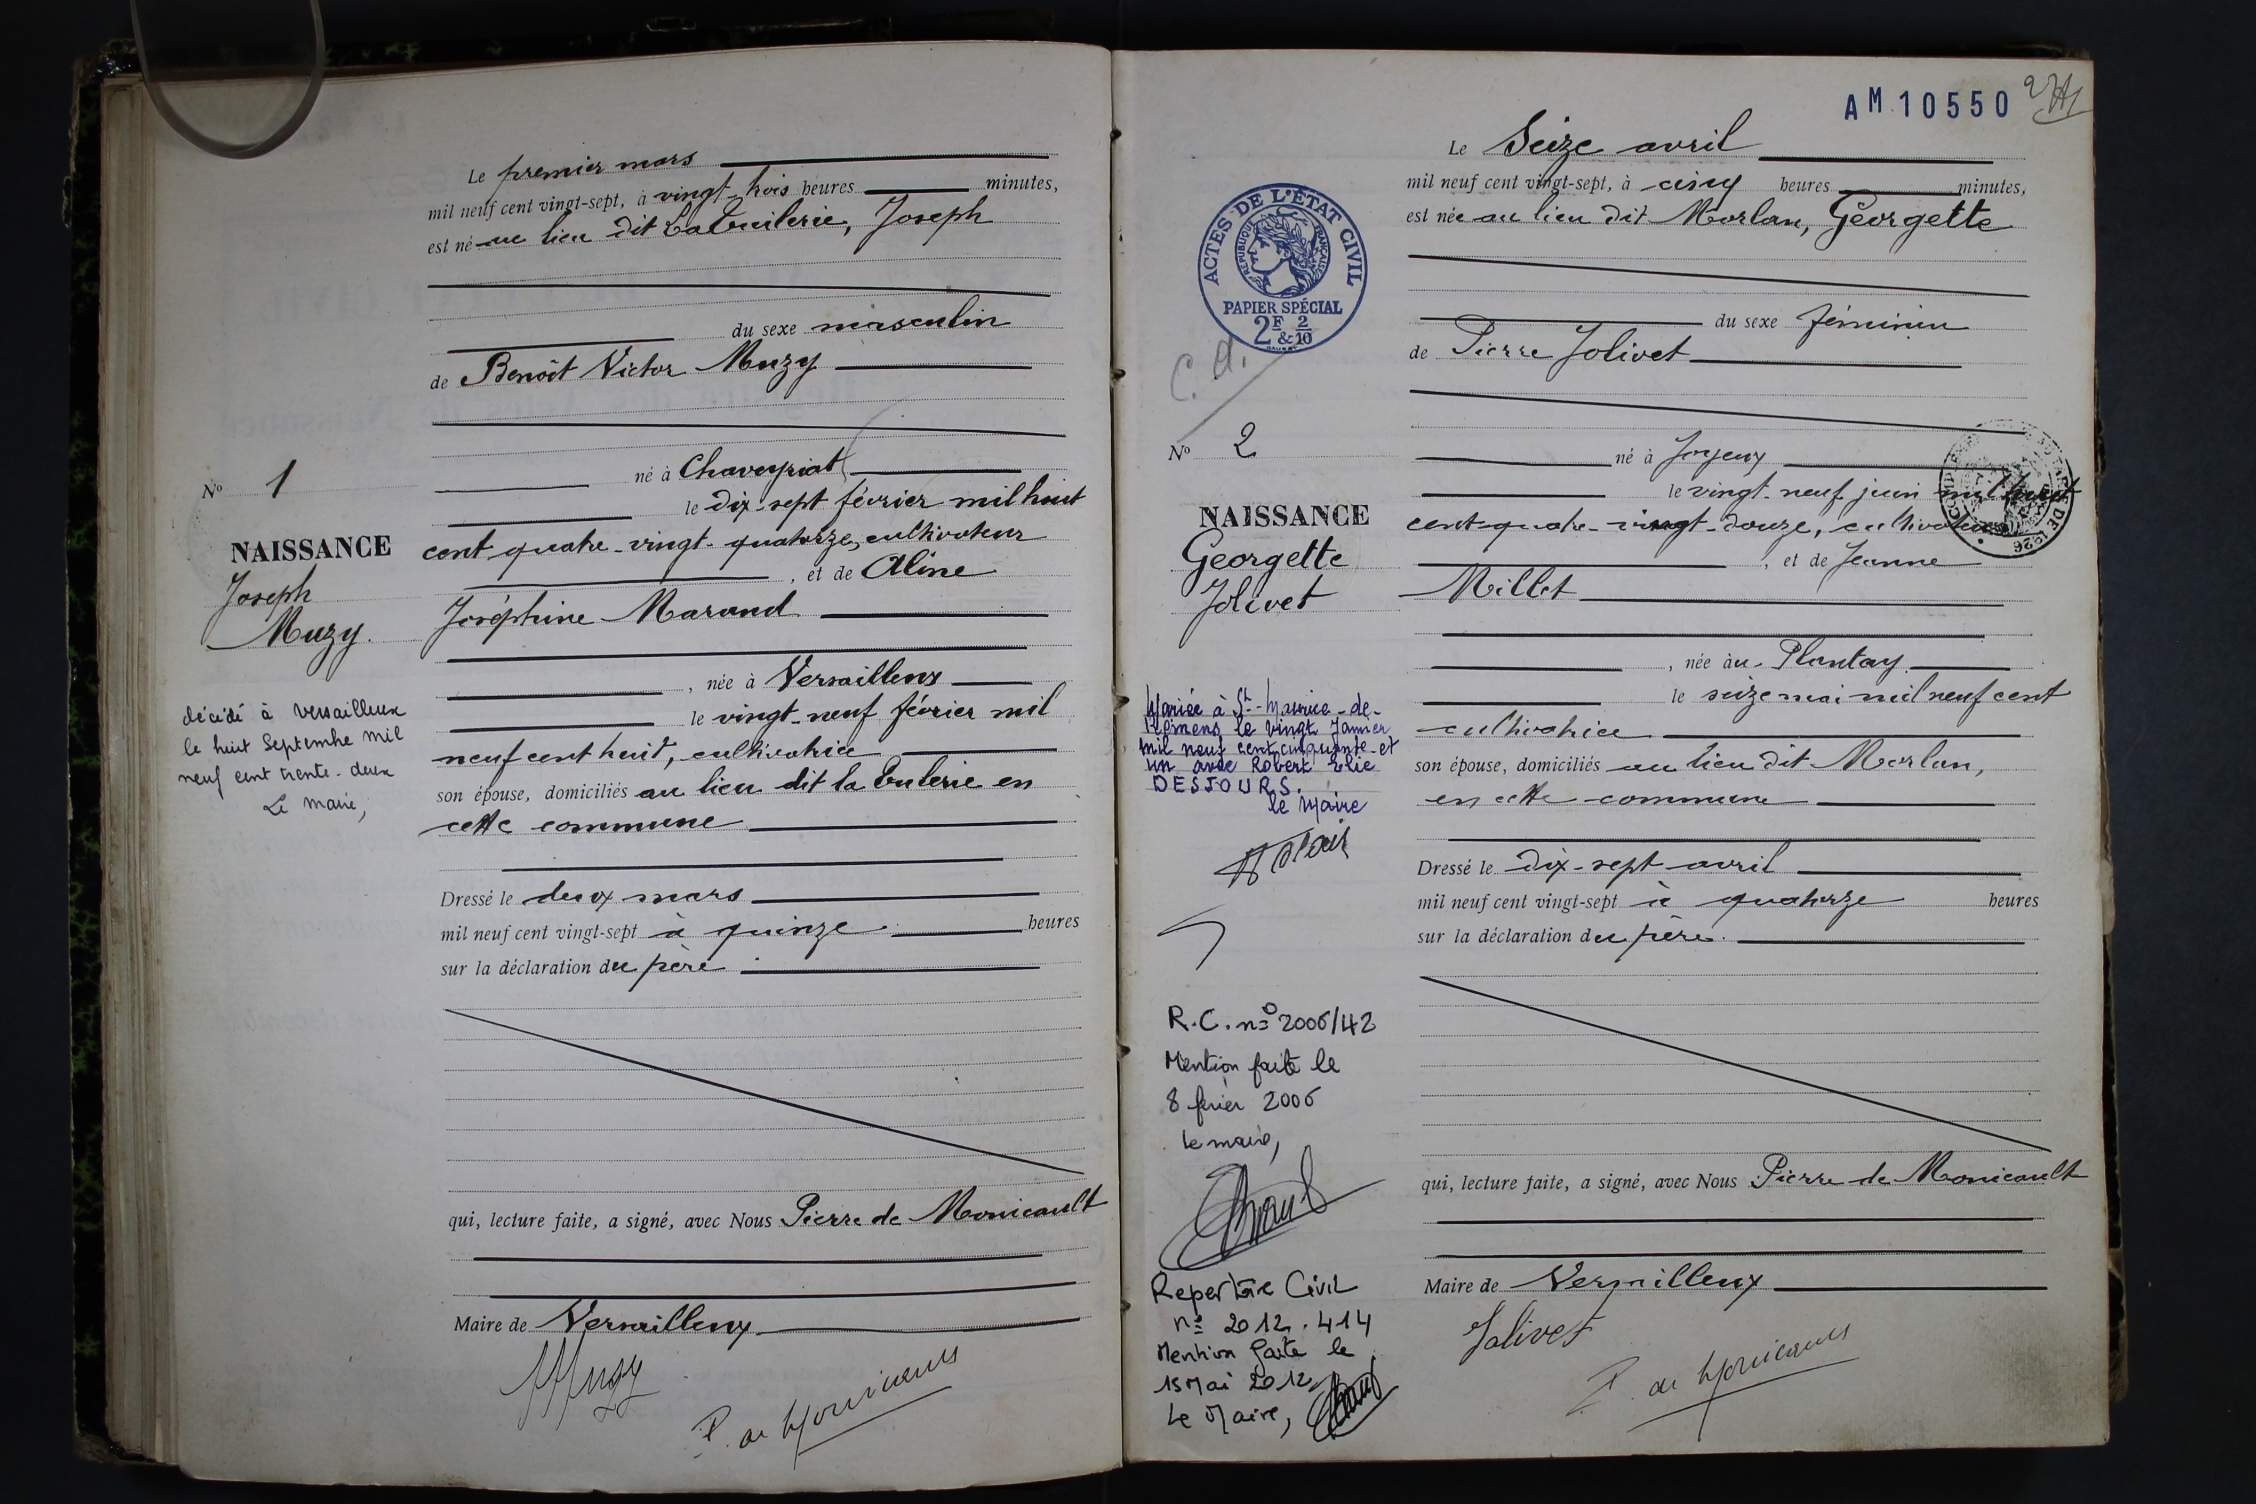 Le premier mars
mil neuf cent vingt-sept, à vingt-trois heures minutes,
est né au lieu dit La Tuilerie, Joseph
du sexe masculin
de Benoît Victor Muzy
né à Chaveyriat
le dix-sept février mil huit
cent quatre-vingt-quatorze, cultivateur
, et de Aline
Joséphine Marand
, née à Versailleux
le vingt-neuf février mil
neuf cent huit, cultivatrice
son épouse, domiciliés au lieu dit la Tulerie en
cette commune
Dressé le deux mars
mil neuf cent vingt-sept à quinze heures
sur la déclaration du père
qui, lecture faite, a signé, avec Nous Pierre de Monicault
Maire de Versailleux
Muzy
P. de Monicault
No 1
NAISSANCE
Joseph
Muzy.
décédé à Versailleux
le huit Septembre mil
neuf cent trente-deux
Le Maire,
AM 10550
Le Seize avril
mil neuf cent vingt-sept, à cinq heures minutes,
est née au lieu dit Morlan, Georgette
du sexe féminin
de Pierre Jolivet
né à Joyeux
le vingt-neuf juin mil huit
cent quatre-vingt-douze, cultivateur
, et de Jeanne
Millet
, née au Plantay
le seize mai mil neuf cent
cultivatrice
son épouse, domiciliés au lieu dit Morlan,
en cette commune
Dressé le dix-sept avril
mil neuf cent vingt-sept à quatorze heures
sur la déclaration du père.
qui, lecture faite, a signé, avec Nous Pierre de Monicault
Maire de Versailleux
Jolivet
P. de Monicault
ACTES DE L'ÉTAT CIVIL
RÉPUBLIQUE FRANÇAISE
PAPIER SPÉCIAL
2F & 2/10
C. A.
No 2
NAISSANCE
Georgette
Jolivet
Mariée à St-Maurice-de-
Rémens le vingt Janvier
mil neuf cent cinquante-et
un avec Robert Elie
DESJOURS.
le Maire
R.C. no 2006/42
Mention faite le
8 février 2006
le maire,
Repertoire Civil
no 2012.414
Mention faite le
15 Mai 2012
Le Maire,